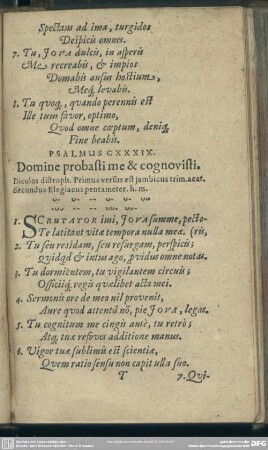 Spectans ad ima, turgidos
Despicis omnes.
7. Tu, JOVA dulcis, in asperis
Me recreabis, & impios
Domabis ausus hostium,
Meq; levabis.
8. Tu quoq, quando perennis est
Ille tuus favor, optimo,
Quod omne cœptum, deniq,
Fine beabis.
PSALMUS CXXXIX.
Domine probasti me & cognovisti.
Dicolos distroph. Primus versus est jambicus trim. acat.
Secundus Elegiacus pentameter. h. m.
1. SCRUTATOR imi, JOVA summe, pecto-
Te latitant vitæ tempora nulla meæ. (ris,
2. Tu seu residam, seu resurgam, perspicis;
Quidqd & intus ago, pvidus omne notas.
3. Tu dormientem, tu vigilantem circuis;
Officiiq; regis quælibet acta mei.
4. Sermonis ore de meo nil provenit,
Aure quod attentâ nõ, pie JOVA, legas.
5. Tu cognitum me cingis antè, tu retrò;
Atq; tuæ refoves additione manus.
6. Vigor tuæ sublimis est scientiæ,
Quem ratio sensu non capit ulla suo.
T
7. Qui-